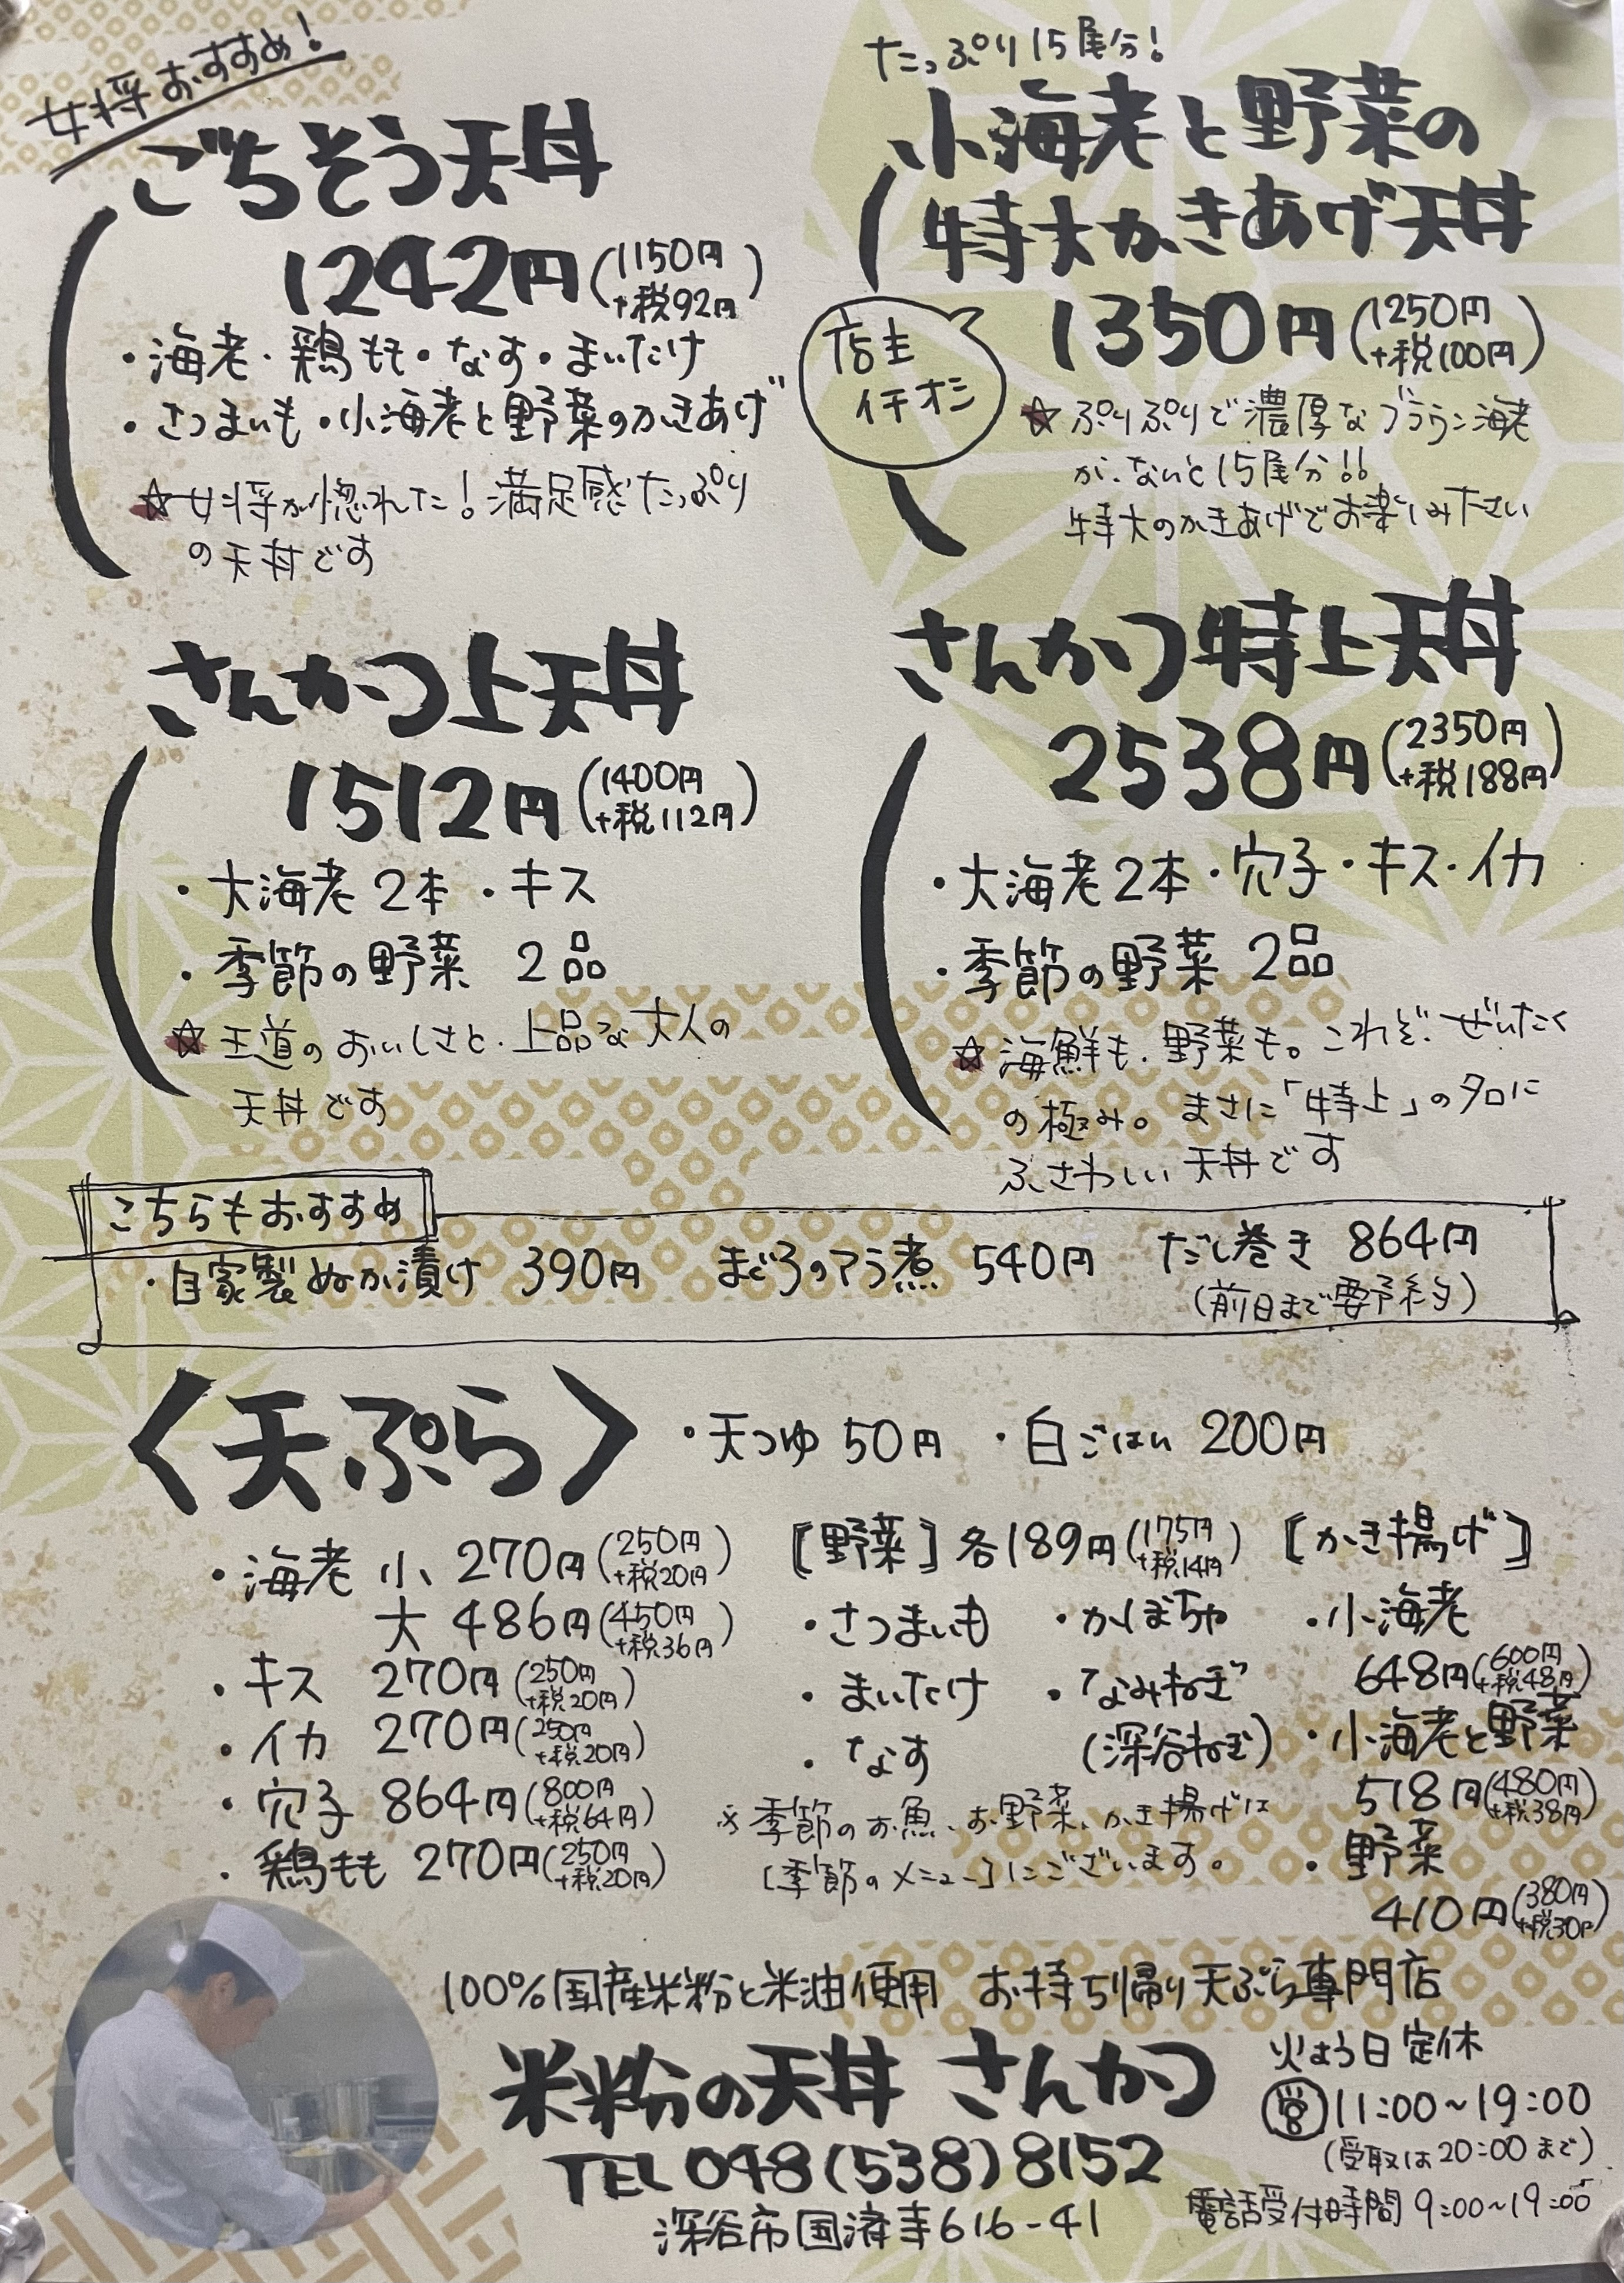 女将おすすめ!
ごちそう天丼
1242円(1150円
+税92円)
・海老・鶏もも・なす・まいたけ
・さつまいも・小海老と野菜のかきあげ
☆女将が惚れた!満足感たっぷり
の天丼です
たっぷり15尾分!
小海老と野菜の
特大かきあげ天丼
店主
イチオシ
1350円(1250円
+税100円)
☆ぷりぷりで濃厚なブラウン海老
が、ないと15尾分!!
特大のかきあげでお楽しみ下さい
さんかつ上天丼
1512円(1400円
+税112円)
・大海老2本・キス
・季節の野菜 2品
☆王道のおいしさと、上品な大人の
天丼です
さんかつ特上天丼
2538円(2350円
+税188円)
・大海老2本・穴子・キス・イカ
・季節の野菜 2品
☆海鮮も、野菜も。これぞ、ぜいたく
の極み。まさに「特上」の名に
ふさわしい天丼です
こちらもおすすめ
・自家製ぬか漬け 390円 まぐろのアラ煮 540円 だし巻き 864円
(前日まで要予約)
〈天ぷら〉 ・天つゆ 50円 ・白ごはん 200円
・海老 小 270円(250円
+税20円)
大 486円(450円
+税36円)
・キス 270円(250円
+税20円)
・イカ 270円(250円
+税20円)
・穴子 864円(800円
+税64円)
・鶏もも 270円(250円
+税20円)
[野菜]各189円(175円
+税14円)
・さつまいも ・かぼちゃ
・まいたけ ・なみねぎ
・なす (深谷ねぎ)
※季節のお魚、お野菜、かき揚げは
[季節のメニュー]にございます。
[かき揚げ]
・小海老
648円(600円
+税48円)
・小海老と野菜
518円(480円
+税38円)
・野菜
410円(380円
+税30円)
100%国産米粉と米油使用 お持ち帰り天ぷら専門店
米粉の天丼 さんかつ
TEL 048(538)8152
深谷市国済寺616-41
火よう日定休
営11:00~19:00
(受取は20:00まで)
電話受付時間 9:00~19:00